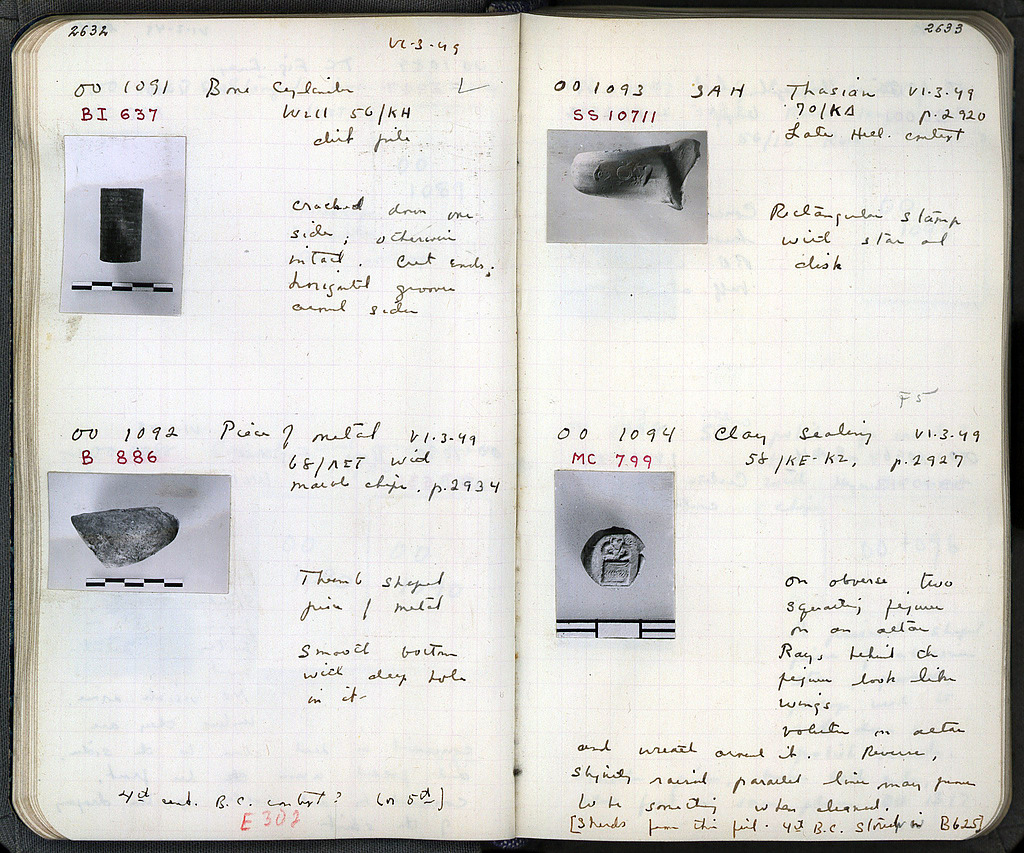 2632
VI-3-49
OO 1091 Bone Cylinder
BI 637
Well 56/KH
dirt pile
cracked down one
side; otherwise
intact. Cut ends.
horizontal grooves
around sides
OO 1092 Piece of metal VI-3-49
B 886
68/ΛΣΤ with
marble chips. p.2934
Thumb shaped
piece of metal
Smooth bottom
with deep hole
in it-
4th cent. B.C. context? (or 5th)
E 302
2633
OO 1093 SAH Thasian VI-3-49
SS 10711
70/ΚΔ p.2920
Late Hell. context
Rectangular stamp
with star and
disk
F5
OO 1094 Clay Sealing VI-3-49
MC 799
58/KE-KZ, p.2927
on obverse, two
squatting figures
on an altar
Rays behind the
figures look like
wings
volutes on altar
and wreath around it. Reverse,
slightly raised parallel lines may prove
to be something when cleaned.
[Sherds from this fill. 4th B.C. Stored in B625]